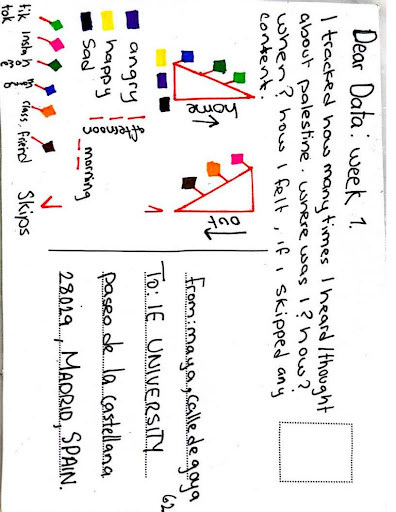 Dear Data: week 1.
I tracked how many times I heard/thought
about palestine. where was I? how?
when? how I felt, if I skipped any
content.
home
out
angry
happy
sad
afternoon
morning
tik
tok
insta
class, friend
Skips
from: maya, calle de goya
62
To: IE UNIVERSITY
Paseo de la castellana
28029, MADRID, SPAIN.